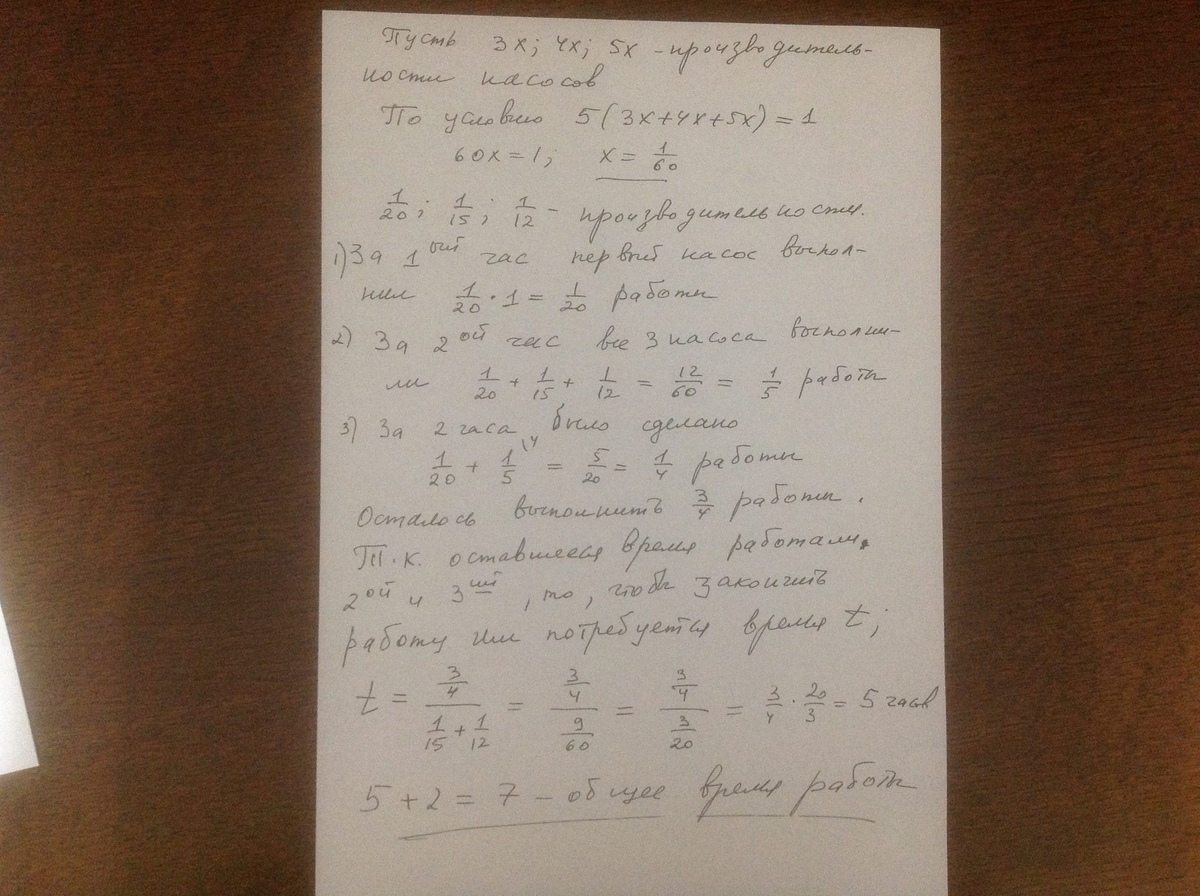 Пусть 3х; 4х; 5х – производитель-
ности насосов
По условию 5(3х+4х+5х)=1
60х=1; х= 1/60
1/20; 1/15; 1/12 – производительности.
1) За 1ый час первый насос выпол-
нил 1/20 · 1 = 1/20 работы
2) За 2ой час все 3 насоса выполни-
ли 1/20 + 1/15 + 1/12 = 12/60 = 1/5 работы
3) За 2 часа было сделано
1/20 + 1/5 \4 = 5/20 = 1/4 работы
Осталось выполнить 3/4 работы.
Т.к. оставшееся время работали
2ой и 3ий, то, чтобы закончить
работу им потребуется время t;
t = (3/4)/(1/15 + 1/12) = (3/4)/(9/60) = (3/4)/(3/20) = 3/4 · 20/3 = 5 часов
5 + 2 = 7 – общее время работы